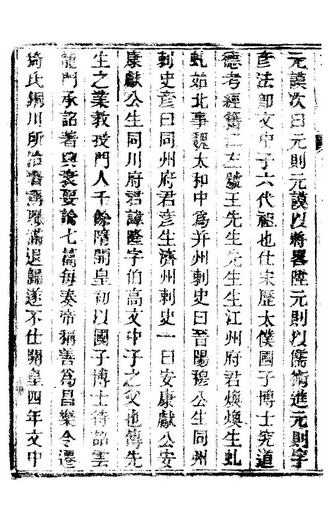 元謨次曰元則元謨以將畧陞元則以儒術進元則字
彦法即文中子六代祖也仕宋歷太僕國子博士究道
德考經籍江左號王先生先生生江州府君煥煥生虬
虬始北事魏太和中爲并州刺史曰晉陽穆公生同州
刺史彦曰同州府君彦生濟州刺史一曰安康獻公安
康獻公生同川府君諱隆字伯高文中子之父也傳先
生之業教授門人千餘隋開皇初以國子博士待詔雲
龍門承詔著興衰要論七篇每奏帝稱善爲昌樂令遷
猗氏銅川所治著稱秩滿退歸遂不仕開皇四年文中